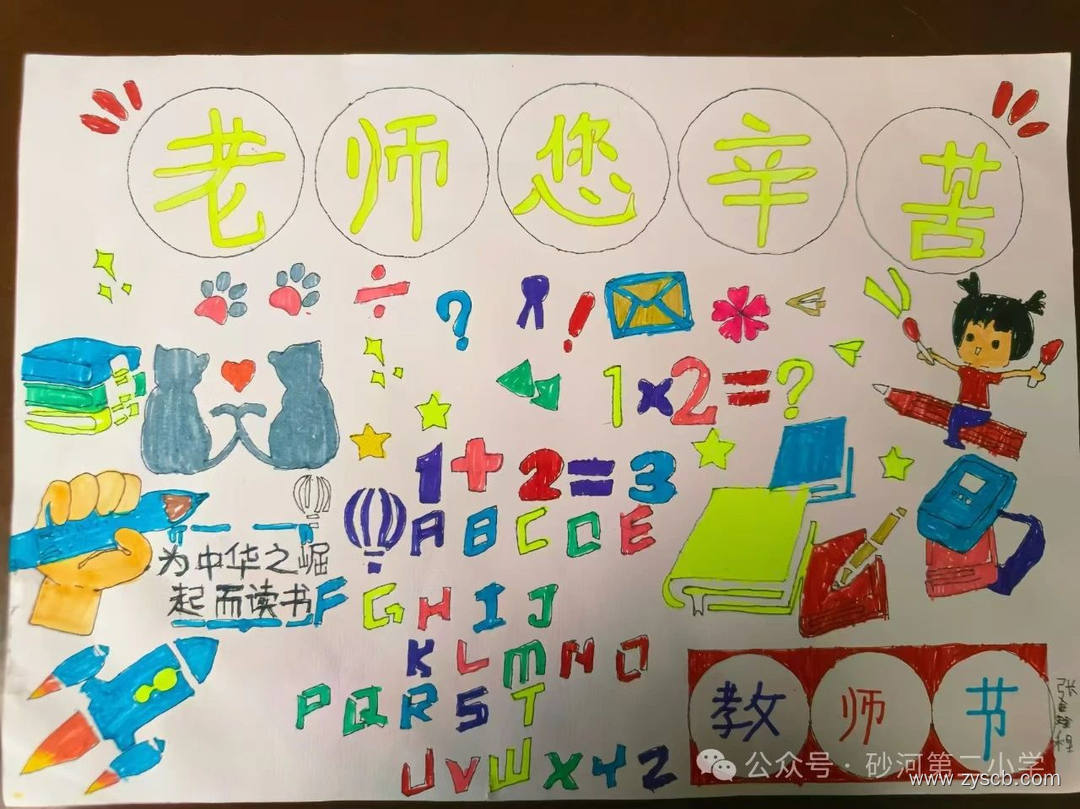 老师您辛苦
1×2=?
1+2=3
ABCDE
为中华之崛
起而读书
FGHIJ
KLMNO
PQRST
UVWXYZ
教师节
公众号·砂河第二小学
www.zyscb.com